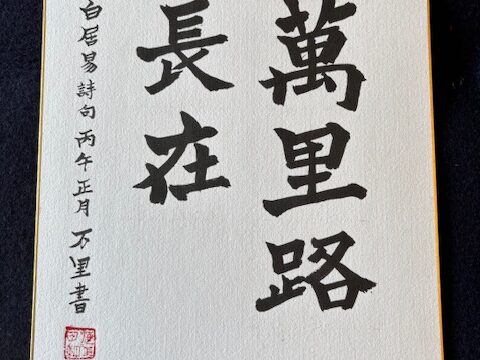 萬里路
長在
白居易詩句 丙午正月 万里書